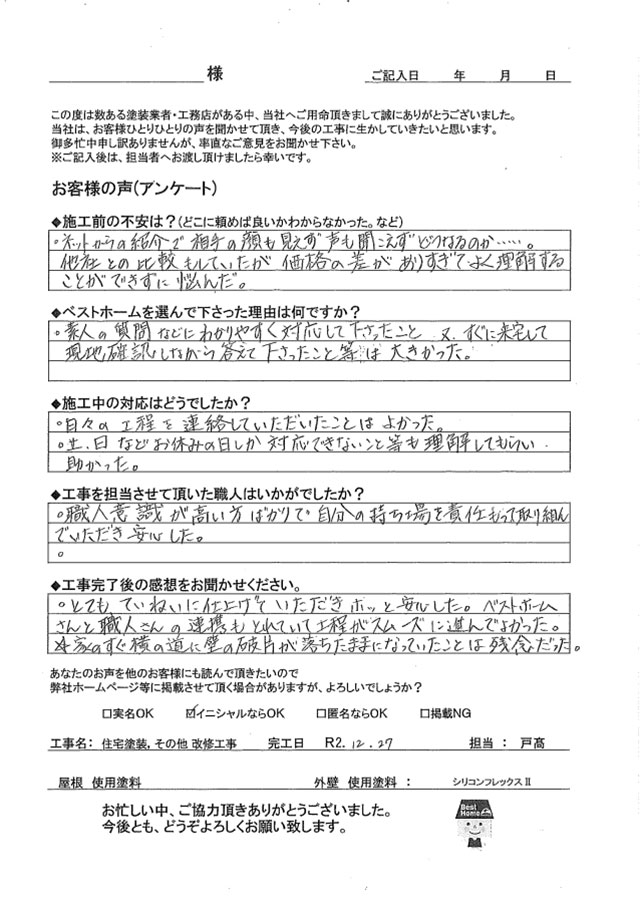 様
ご記入日 年 月 日
この度は数ある塗装業者・工務店がある中、当社へご用命頂きまして誠にありがとうございました。
当社は、お客様ひとりひとりの声を聞かせて頂き、今後の工事に生かしていきたいと思います。
御多忙中申し訳ありませんが、率直なご意見をお聞かせ下さい。
※ご記入後は、担当者へお渡し頂けましたら幸いです。
お客様の声(アンケート)
◆施工前の不安は?(どこに頼めば良いかわからなかった。など)
◦ネットからの紹介で相手の顔も見えず声も聞こえずどうなるのか……。
他社との比較もしていたが価格の差がありすぎてよく理解する
ことができずに悩んだ。
◆ベストホームを選んで下さった理由は何ですか?
◦素人の質問などにわかりやすく対応して下さったこと 又、すぐに来宅して
現地確認しながら答えて下さったこと等は大きかった。
◆施工中の対応はどうでしたか?
◦日々の工程を連絡していただいたことはよかった。
◦土、日などお休みの日しか対応できないこと等も理解してもらい
助かった。
◆工事を担当させて頂いた職人はいかがでしたか?
◦職人意識が高い方ばかりで自分の持ち場を責任もって取り組ん
でいただき安心した。
◦
◆工事完了後の感想をお聞かせください。
◦とてもていねいに仕上げていただきホッと安心した。ベストホーム
さんと職人さんの連携もとれていて工程がスムーズに進んでよかった。
※家のすぐ横の道に壁の破片が落ちたままになっていたことは残念だった。
あなたのお声を他のお客様にも読んで頂きたいので
弊社ホームページ等に掲載させて頂く場合がありますが、よろしいでしょうか?
□実名OK ☑イニシャルならOK □匿名ならOK □掲載NG
工事名: 住宅塗装,その他 改修工事 完工日 R2.12.27 担当: 戸髙
屋根 使用塗料 外壁 使用塗料: シリコンフレックスⅡ
お忙しい中、ご協力頂きありがとうございました。
今後とも、どうぞよろしくお願い致します。
Best
Home